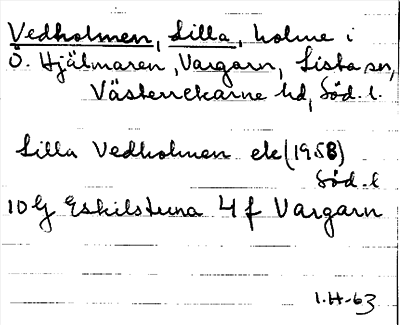 Vedholmen, Lilla, holme i
Ö. Hjälmaren, Vargarn, Lista sn,
Västerrekarne hd, Söd. l.
Lilla Vedholmen ek (1958)
Söd. l
10 G Eskilstuna 4 f Vargarn
I.H-63